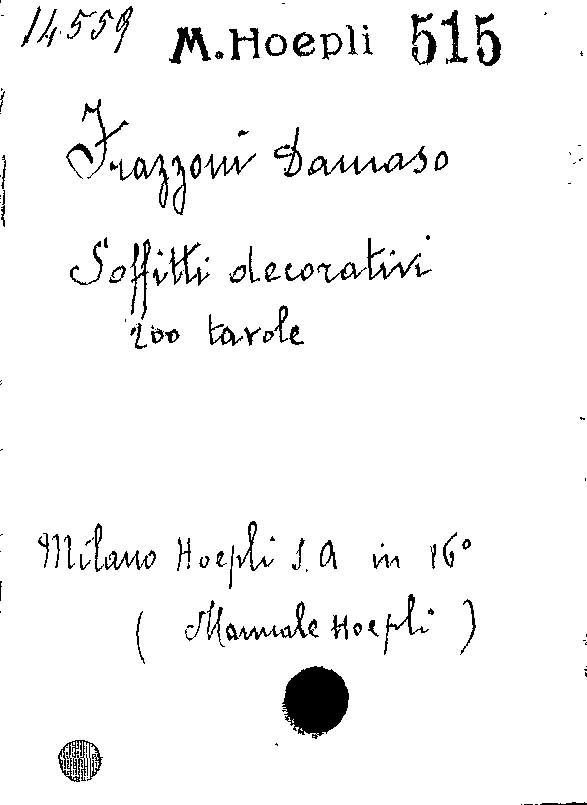 14559 M. Hoepli 515
Frazzoni Damaso
Soffitti decorativi
200 tavole
Milano Hoepli S. A in 16°
( Manuale Hoepli )